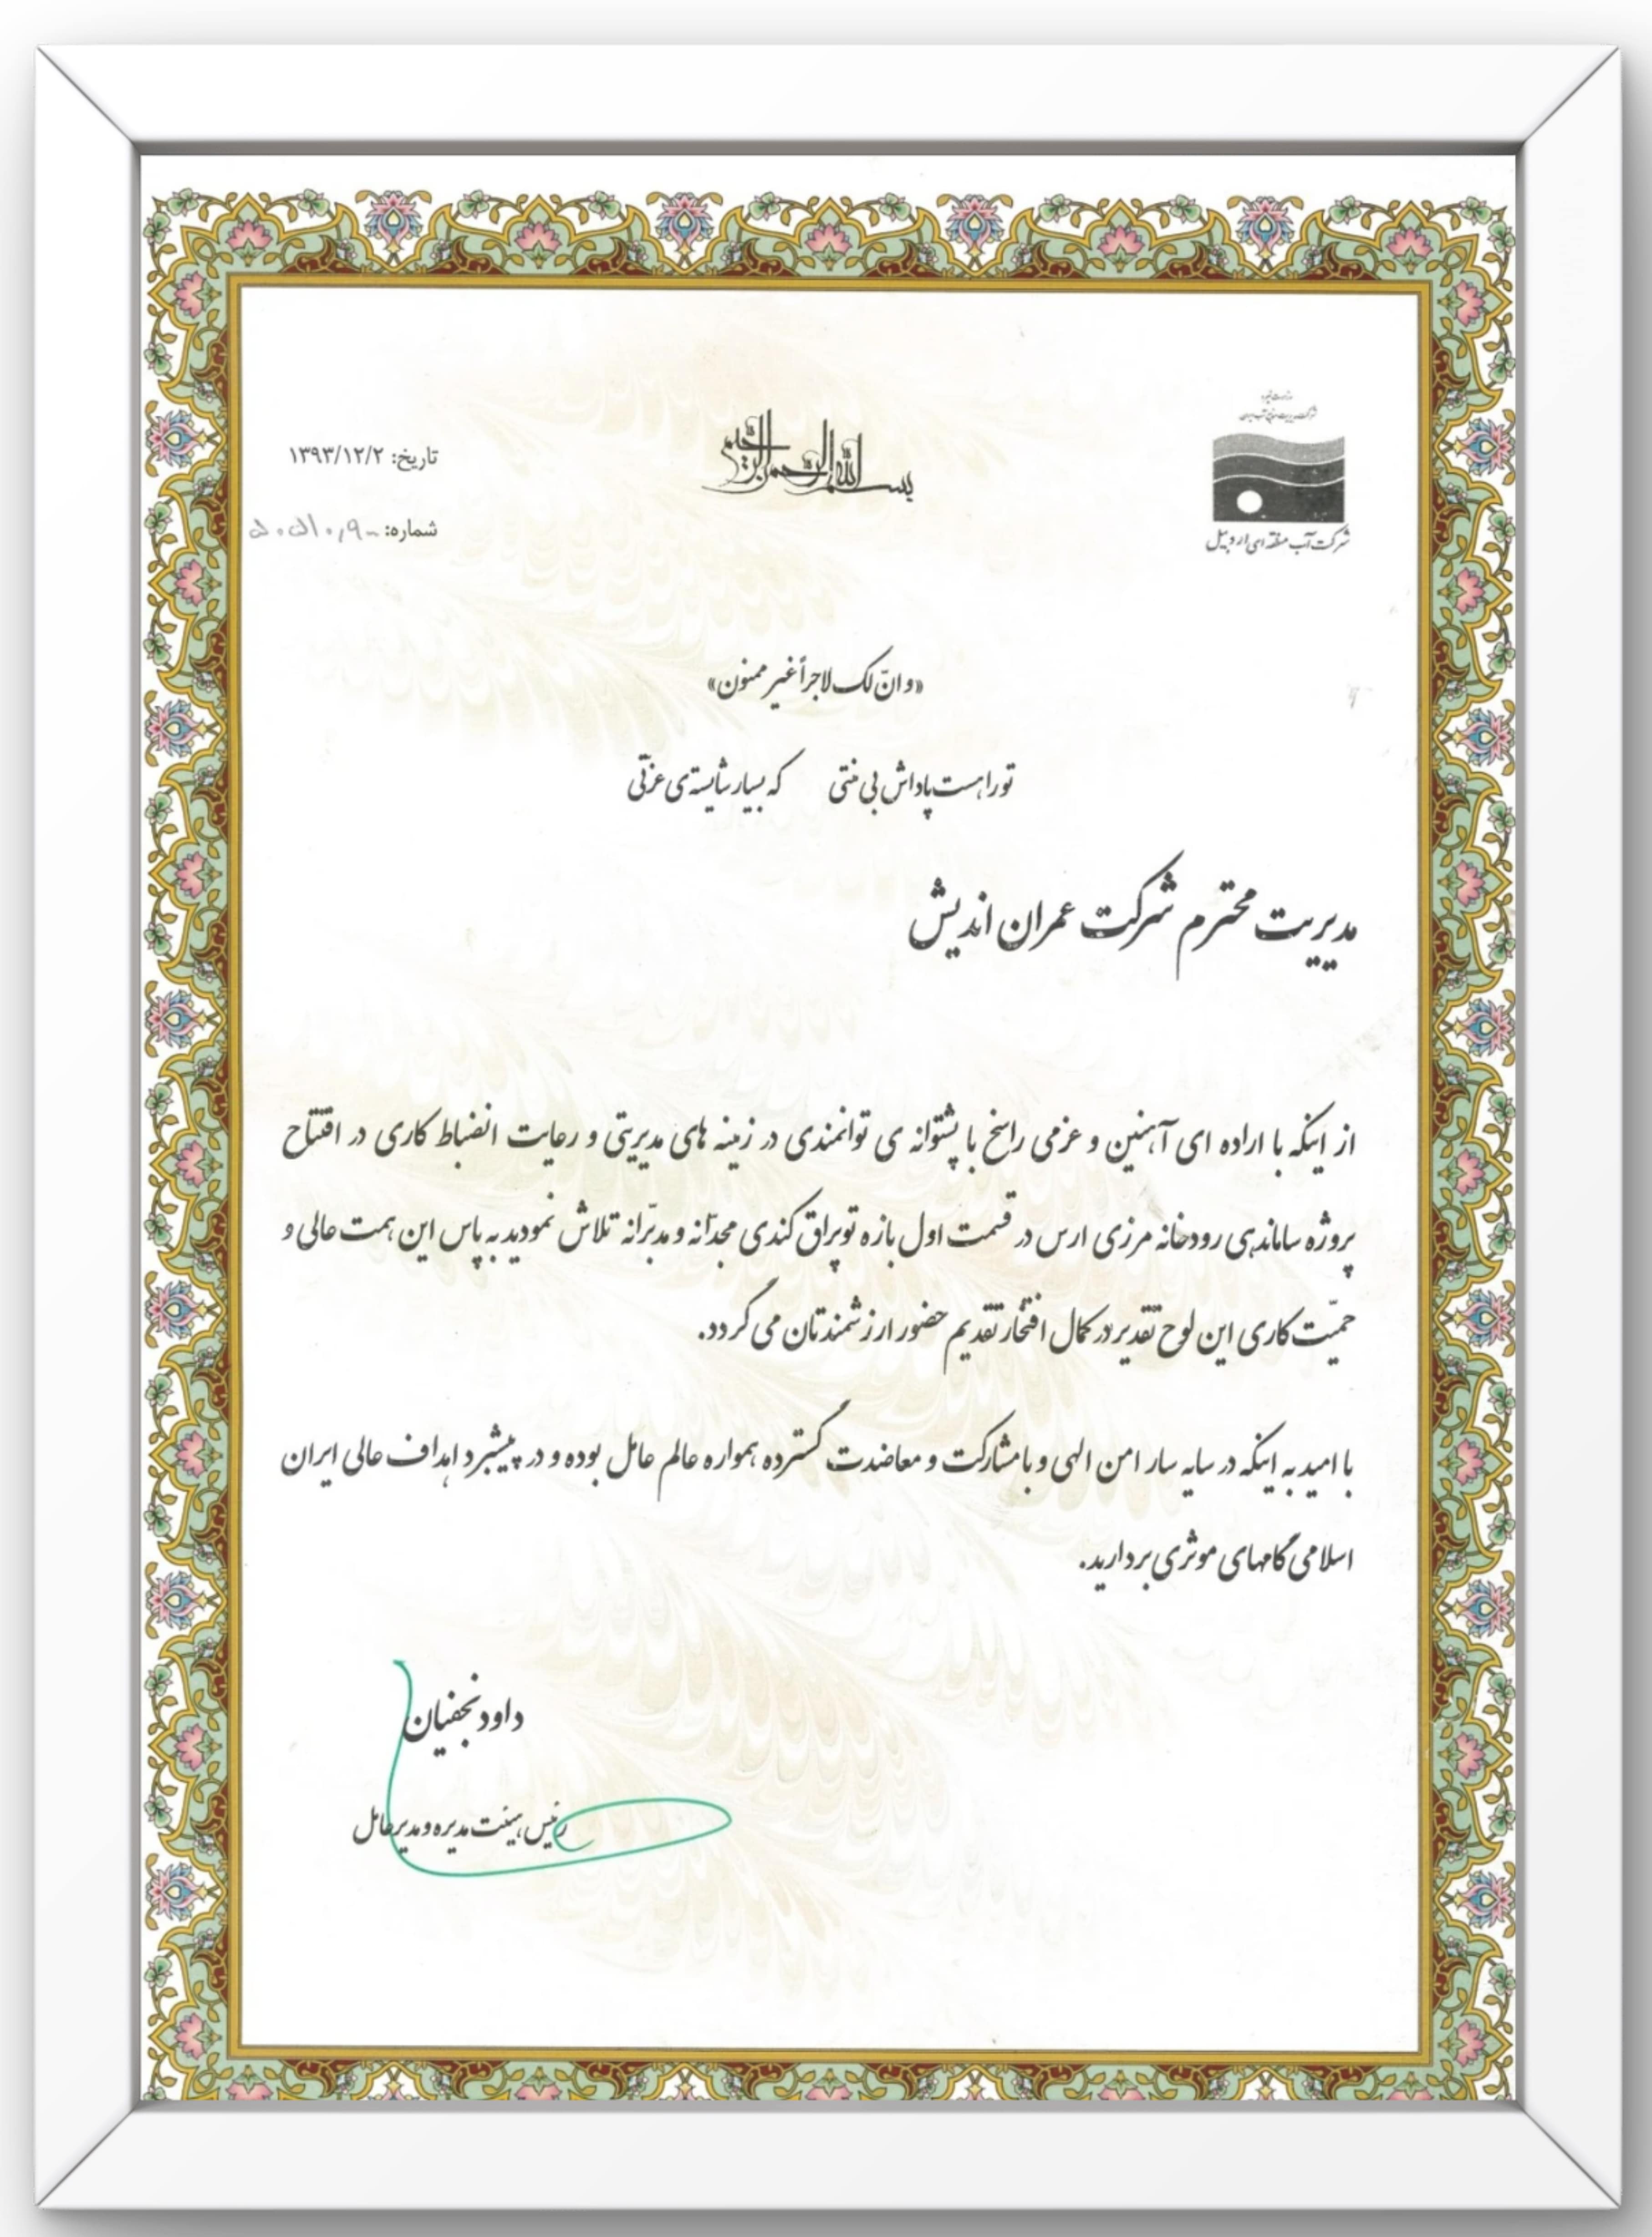 بسم الله الرحمن الرحیم
وزارت نیرو
شرکت مدیریت منابع آب ایران
شرکت آب منطقه ای اردبیل
تاریخ: ۱۳۹۳/۱۲/۲
شماره:
«و انّ لک لاجراً غیر ممنون»
تو راست پاداش بی منتی که بسیار شایسته ی عزتی
مدیریت محترم شرکت عمران اندیش
از اینکه با اراده ای آهنین و عزمی راسخ با پشتوانه ی توانمندی در زمینه های مدیریتی و رعایت انضباط کاری در افتتاح
پروژه ساماندهی رودخانه مرزی ارس در قسمت اول بازه توپراق کندی مجدّانه و مدبّرانه تلاش نمودید به پاس این همت عالی و
حمیّت کاری این لوح تقدیر در کمال افتخار تقدیم حضور ارزشمندتان می گردد.
با امید به اینکه در سایه سار امن الهی و با مشارکت و معاضدت گسترده همواره عالم عامل بوده و در پیشبرد اهداف عالی ایران
اسلامی گامهای موثری بردارید.
داود نجفیان
رئیس هیئت مدیره و مدیرعامل